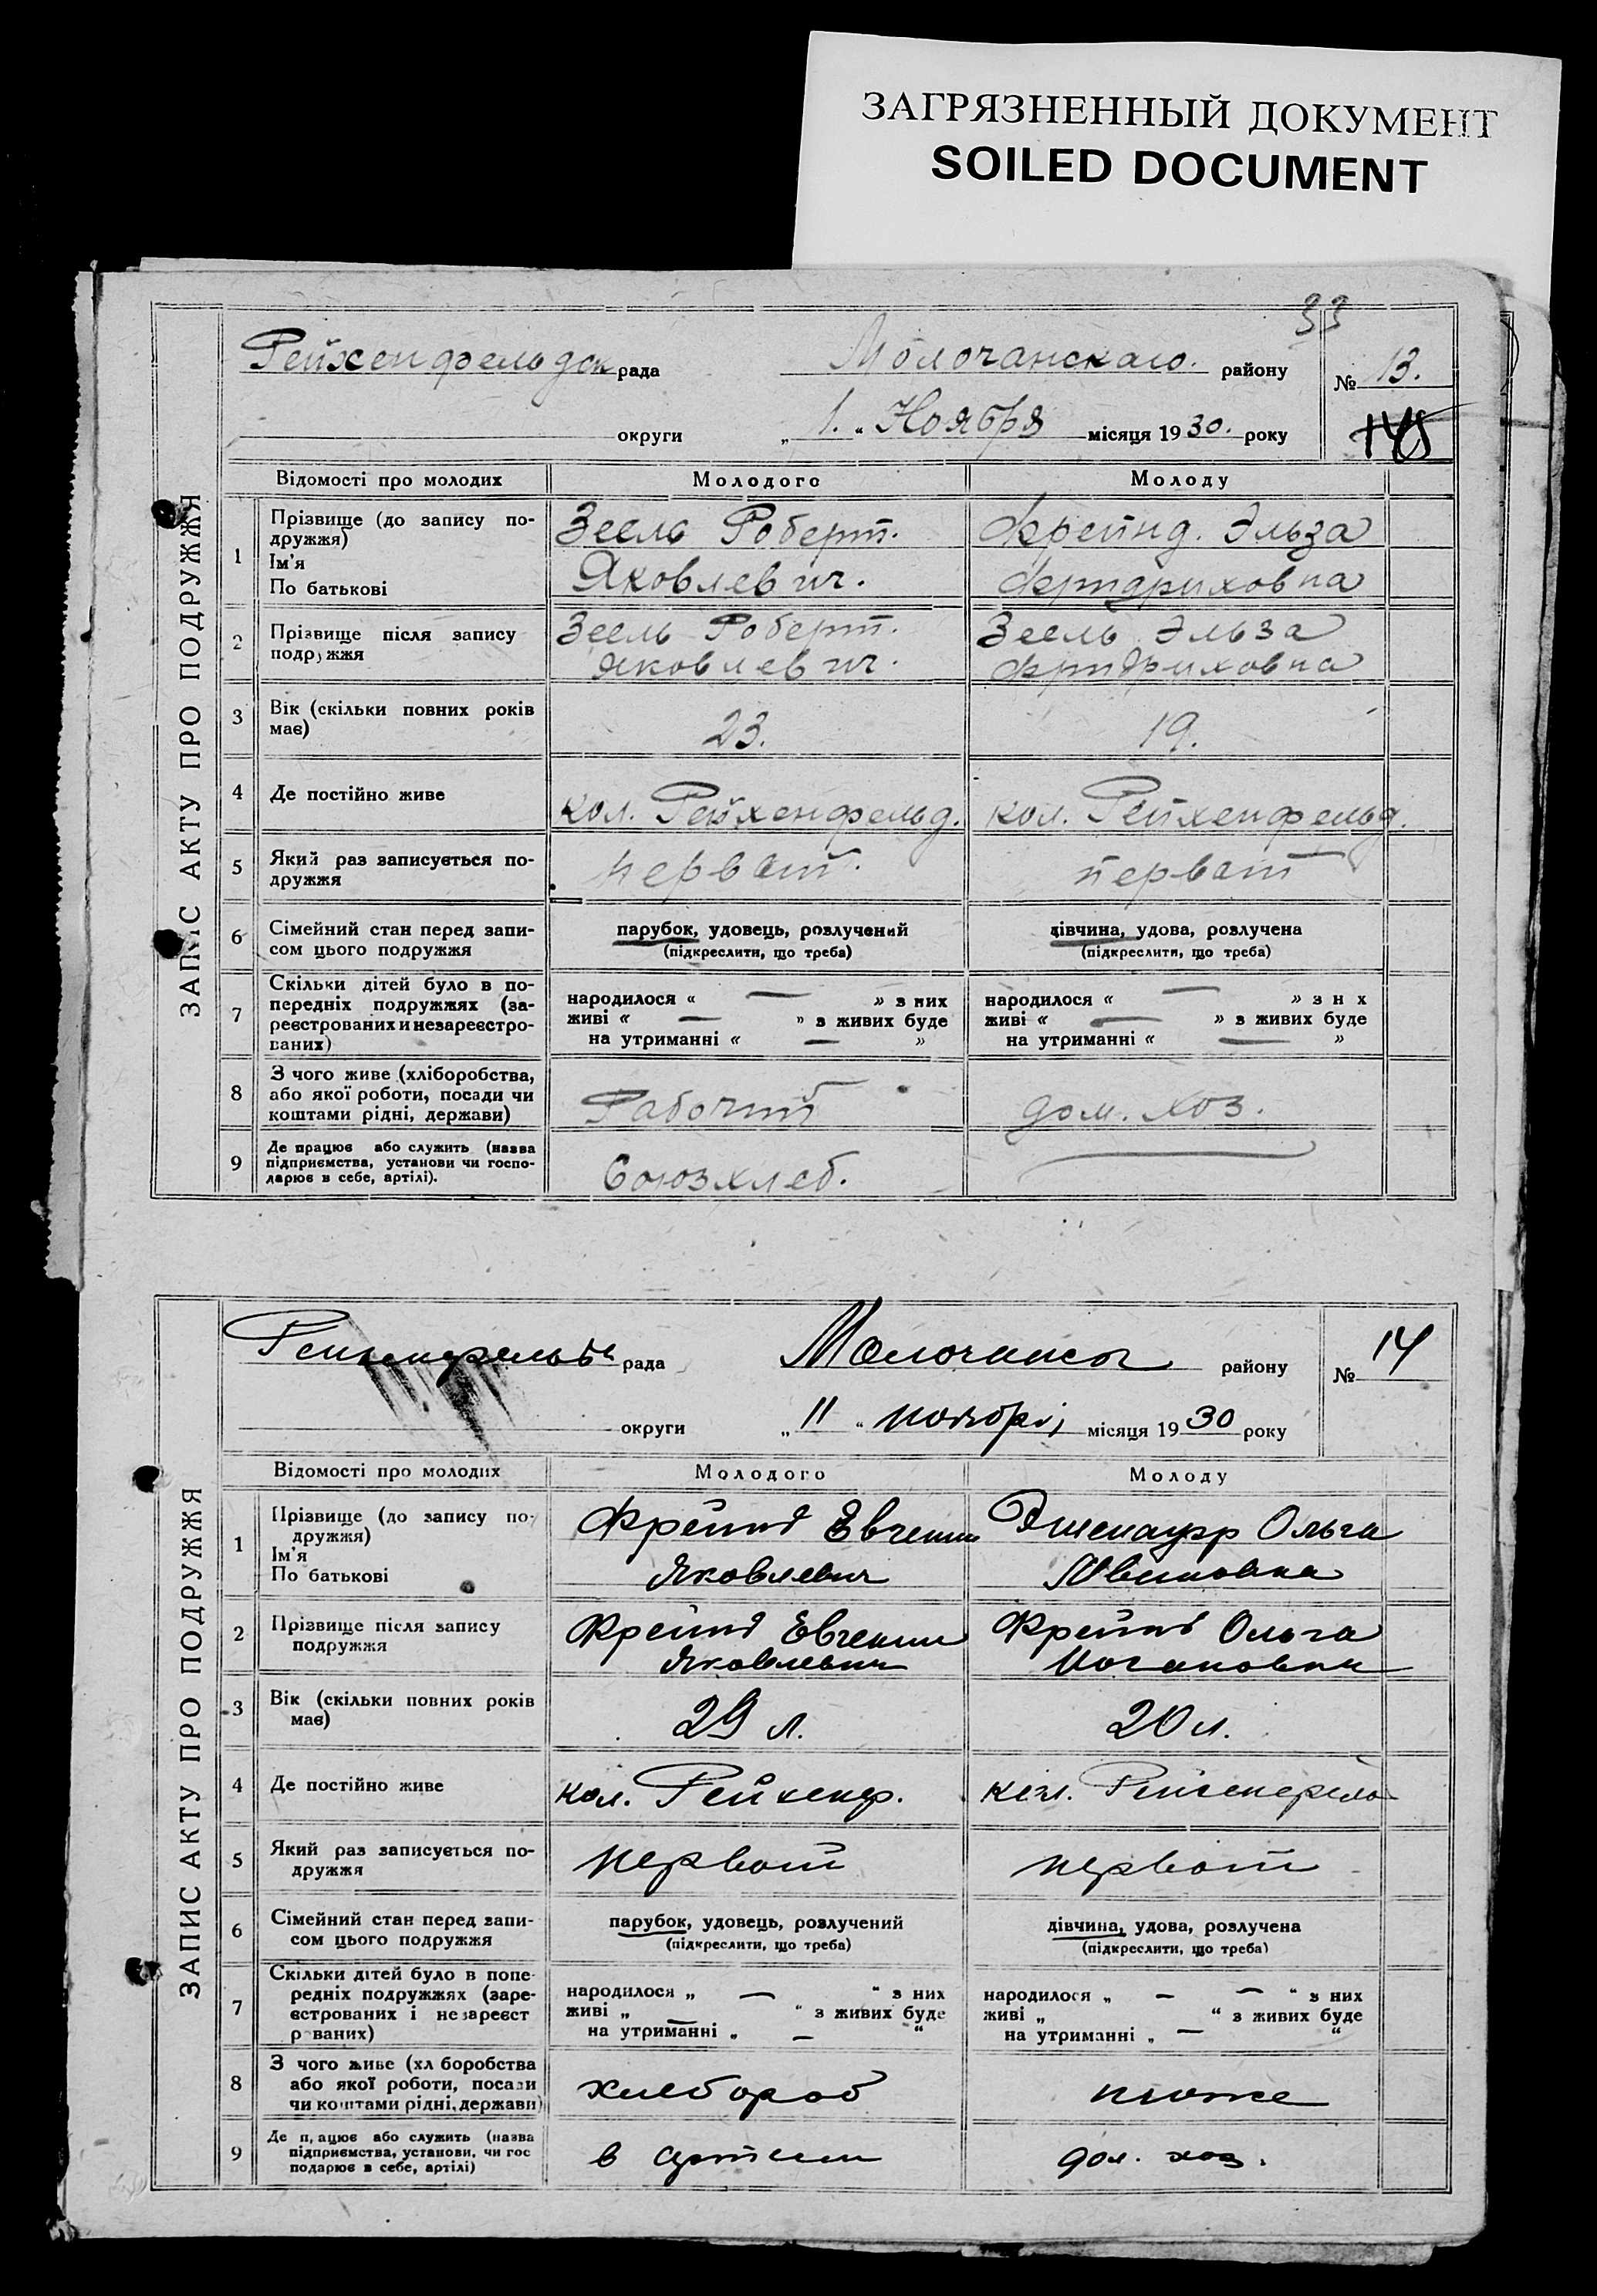 ЗАГРЯЗНЕННЫЙ ДОКУМЕНТ
SOILED DOCUMENT
33
Рейхенфельдск рада Молочанскаго. району № 13.
округи „ 1. “ Ноября місяця 1930. року 145
ЗАПИС АКТУ ПРО ПОДРУЖЖЯ
Відомості про молодих Молодого Молоду
1 Прізвище (до запису по-
дружжя)
Ім'я
По батькові
Зеель Роберт.
Яковлевич.
Фрейнд. Эльза
Фридриховна
2 Прізвище після запису
подружжя
Зеель Роберт.
Яковлевич.
Зеель Эльза
Фридриховна
3 Вік (скільки повних років
має)
23. 19.
4 Де постійно живе кол. Рейхенфельд. кол. Рейхенфельд.
5 Який раз записується по-
дружжя
первый. первый
6 Сімейний стан перед запи-
сом цього подружжя
парубок, удовець, розлучений
(підкреслити, що треба)
дівчина, удова, розлучена
(підкреслити, що треба)
7 Скільки дітей було в по-
передніх подружжях (за-
реєстрованих и незареєстро-
ваних)
народилося « — » з них
живі « — » з живих буде
на утриманні « — »
народилося « — » з н х
живі « — » з живих буде
на утриманні « — »
8 З чого живе (хліборобства,
або якої роботи, посади чи
коштами рідні, держави)
Рабочий дом. хоз.
9 Де працює або служить (назва
підприємства, установи чи госпо-
дарює в себе, артілі).
Союзхлеб. —
рада району № 14
округи „ 11 “ ноября місяця 1930 року
ЗАПИС АКТУ ПРО ПОДРУЖЖЯ
Відомості про молодих Молодого Молоду
1 Прізвище (до запису по-
дружжя)
Ім'я
По батькові
Фрейнд Евгений
Яковлевич
Ольга
2 Прізвище після запису
подружжя
Фрейнд Евгений
Яковлевич
Фрейнд Ольга
Иогановна
3 Вік (скільки повних років
має)
29 л. 20 л.
4 Де постійно живе кол. Рейхенф. кол. Рейхенфельд
5 Який раз записується по-
дружжя
первый первый
6 Сімейний стан перед запи-
сом цього подружжя
парубок, удовець, розлучений
(підкреслити, що треба)
дівчина, удова, розлучена
(підкреслити, що треба)
7 Скільки дітей було в попе-
редніх подружжях (заре-
єстрованих і незареєст
р ваних)
народилося „ — “ з них
живі „ — “ з живих буде
на утриманні „ — “
народилося „ — — “ з них
живі „ “ з живих буде
на утриманні „ — “
8 З чого живе (хл боробства
або якої роботи, посади
чи коштами рідні, держави)
хлебороб тоже
9 Де п, ацює або служить (назва
підприємства, установи, чи гос
подарює в себе, артілі)
в артели дом. хоз.